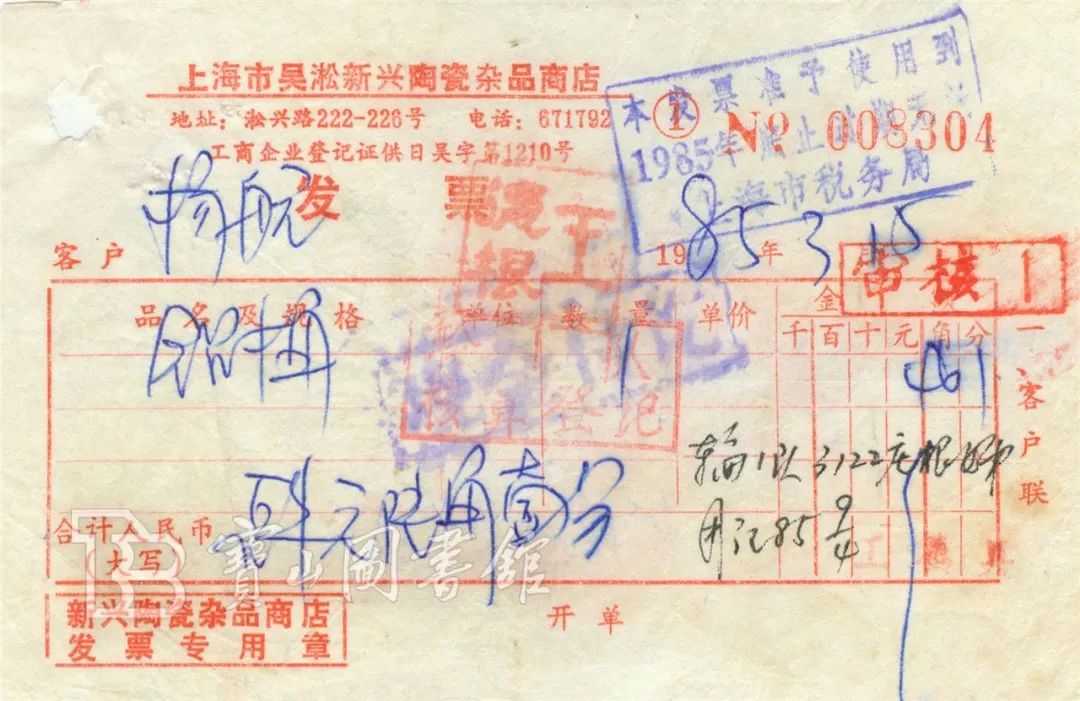 上海市吴淞新兴陶瓷杂品商店
地址：淞兴路222-226号 电话：671792
工商企业登记证供日吴字第1210号
① № 008304
本发票准予使用到
1985年底止过期无
上海市税务局
发票
客户 杨
1985年3月15
审核 1
品名及规格 单位 数量 单价 金
千百十元角分
铝 1 461
核单登记
合计人民币大写 肆元陆角壹分
用记85 9/4
一、客户联
寶山圖書館
新兴陶瓷杂品商店
发票专用章
开单